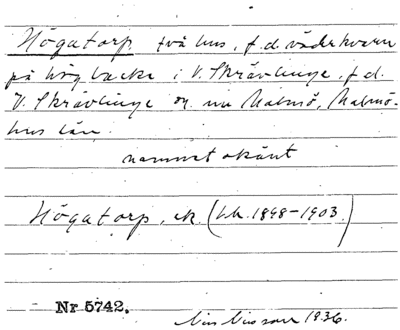 Högatorp två hus, f.d. väderkvarn
på hög backe i V. Skrävlinge, f.d.
V. Skrävlinge sn. nu Malmö, Malmö-
hus län.
namnet okänt
Högatorp, ek. (kb. 1898-1903.)
Nr 5742.
Nils Nilsson 1936.